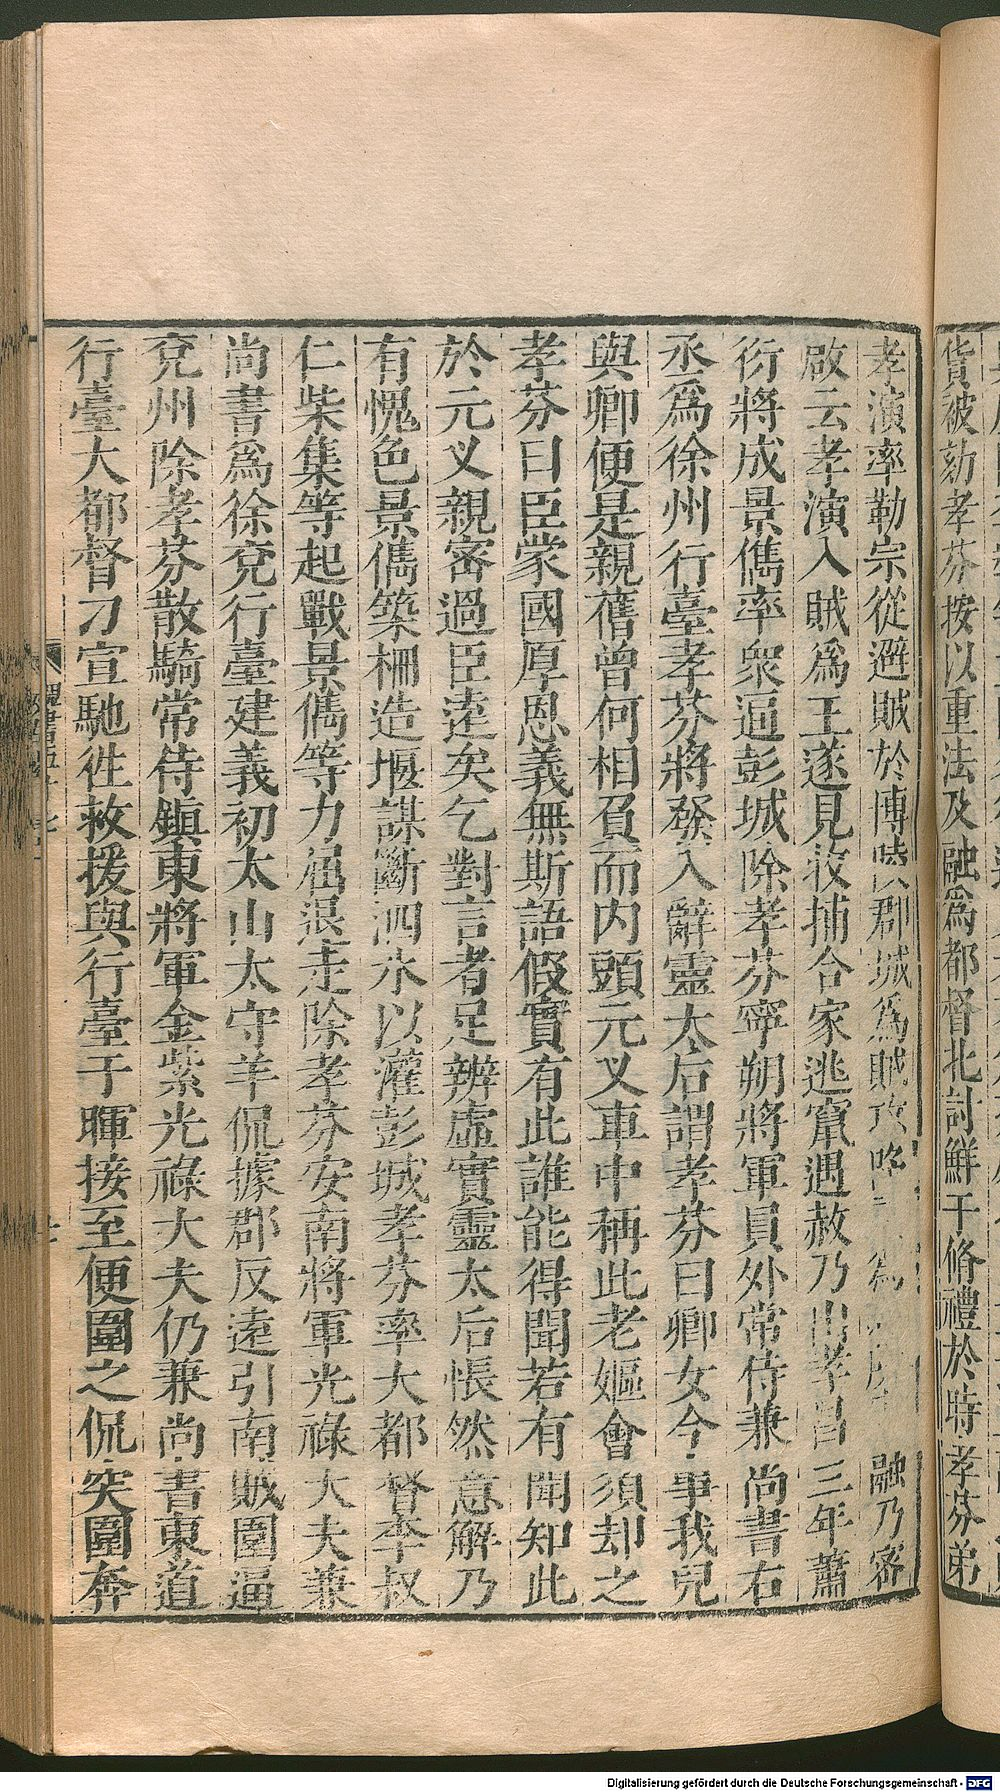 貨被劾孝芬按以重法及融爲都督北討鮮于脩禮於時孝芬弟
孝演率勒宗從避賊於博陵郡城爲賊攻陷 爲 融乃密
啟云孝演入賊爲王遂見收捕合家逃竄遇赦乃出孝昌三年蕭
衍將成景儁率衆逼彭城除孝芬寧朔將軍員外常侍兼尚書右
丞爲徐州行臺孝芬將發入辭靈太后謂孝芬曰卿女今事我兒
與卿便是親舊曾何相負而内頭元叉車中稱此老嫗會須却之
孝芬曰臣蒙國厚恩義無斯語假實有此誰能得聞若有聞知此
於元叉親密過臣遠矣乞對言者足辨虛實靈太后悵然意解乃
有愧色景儁築柵造堰謀斷泗水以灌彭城孝芬率大都督李叔
仁柴集等起戰景儁等力屈退走除孝芬安南將軍光祿大夫兼
尚書爲徐兗行臺建義初太山太守羊侃據郡反遠引南賊圍逼
兗州除孝芬散騎常侍鎮東將軍金紫光祿大夫仍兼尚書東道
行臺大都督刁宣馳往救援與行臺于暉接至便圍之侃突圍奔
魏書五十七
Digitalisierung gefördert durch die Deutsche Forschungsgemeinschaft - DFG